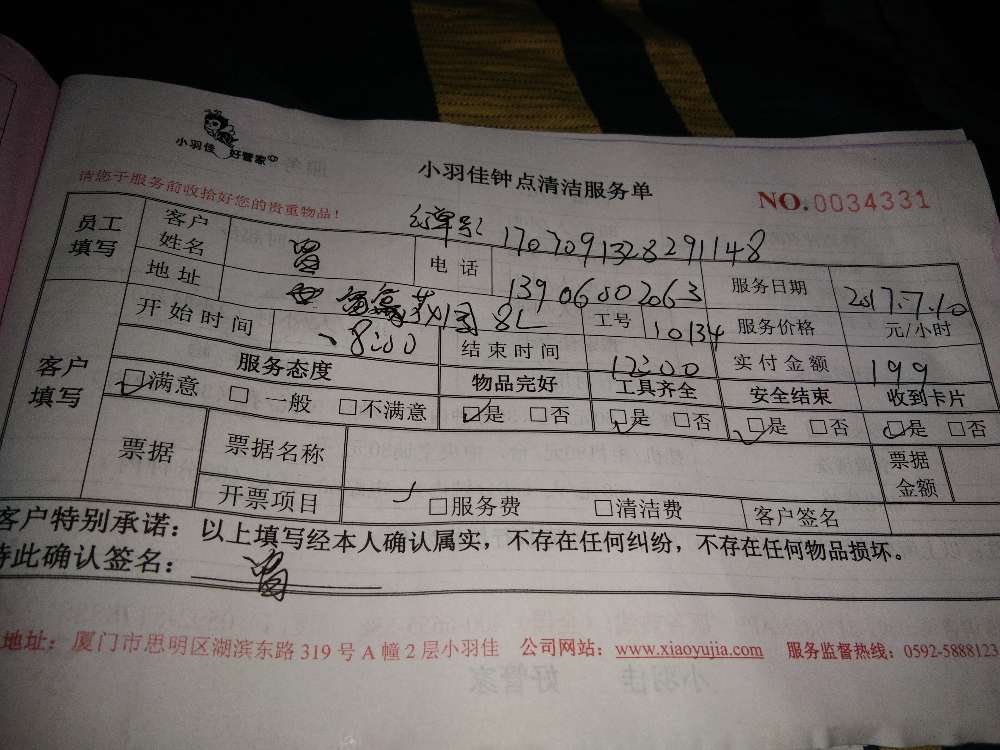 小羽佳 好管家
小羽佳钟点清洁服务单
请您于服务前收拾好您的贵重物品!
NO.0034331
员工填写
客户姓名
电话
1707091328291148
13906802063
服务日期
2017.7.10
地址
8L
工号
10134
服务价格
元/小时
客户填写
开始时间
8:00
结束时间
12:00
实付金额
199
服务态度
物品完好
工具齐全
安全结束
收到卡片
□满意 □一般 □不满意
□是 □否
□是 □否
□是 □否
□是 □否
票据
票据名称
票据金额
开票项目
□服务费
□清洁费
客户签名
客户特别承诺:以上填写经本人确认属实,不存在任何纠纷,不存在任何物品损坏。
特此确认签名:
地址:厦门市思明区湖滨东路319号A幢2层小羽佳 公司网站:www.xiaoyujia.com 服务监督热线:0592-5888123